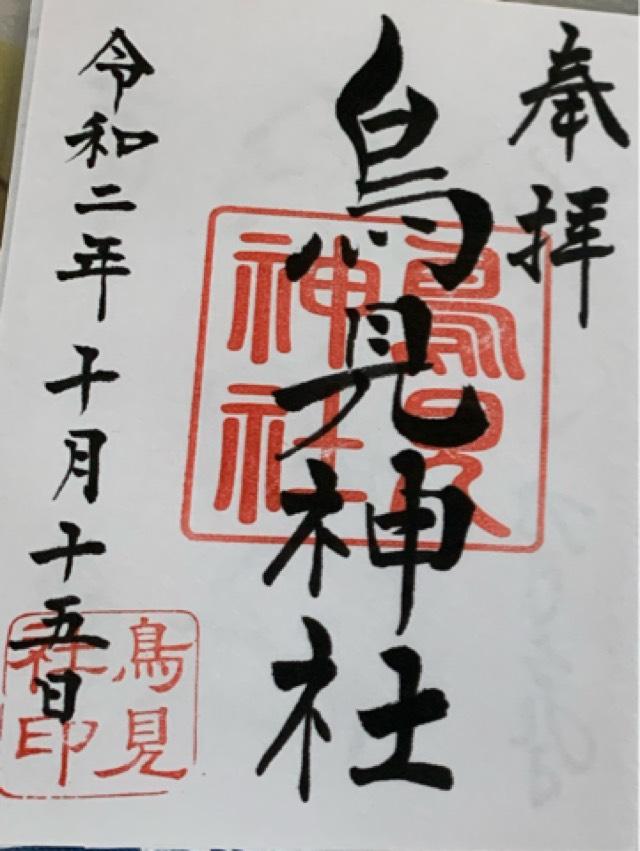 奉拝
鳥見神社
令和二年十月十五日
鳥見
神社
鳥見
社印